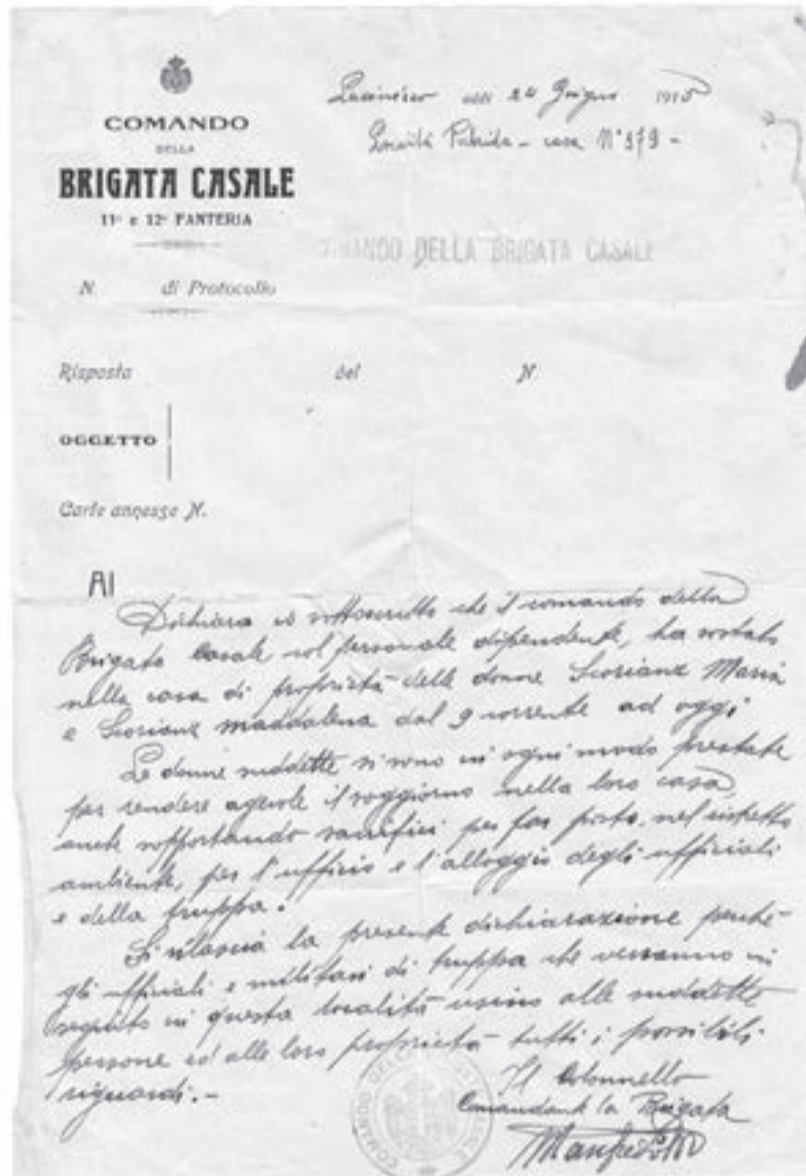 COMANDO
DELLA
BRIGATA CASALE
11° e 12° FANTERIA
addì 24 Giugno 1915
Località - casa N° 979 -
COMANDO DELLA BRIGATA CASALE
N. di Protocollo
Risposta del N.
OGGETTO
Carte annesse N.
Al
Dichiara io sottoscritto che il comando della
Brigata Casale col personale dipendente, ha sostato
nella casa di proprietà delle donne Scorianz Maria
e Scorianz Maddalena dal 9 corrente ad oggi
Le donne suddette si sono in ogni modo prestate
per rendere agevole il soggiorno nella loro casa
anche sopportando sacrifici per far posto, nel ristretto
ambiente, per l'ufficio e l'alloggio degli ufficiali
e della truppa.
Si rilascia la presente dichiarazione perchè
gli ufficiali e militari di truppa che verranno in
seguito in questa località usino alle suddette
persone ed alle loro proprietà tutti i possibili
riguardi. -
Il Colonnello
Comandante la Brigata